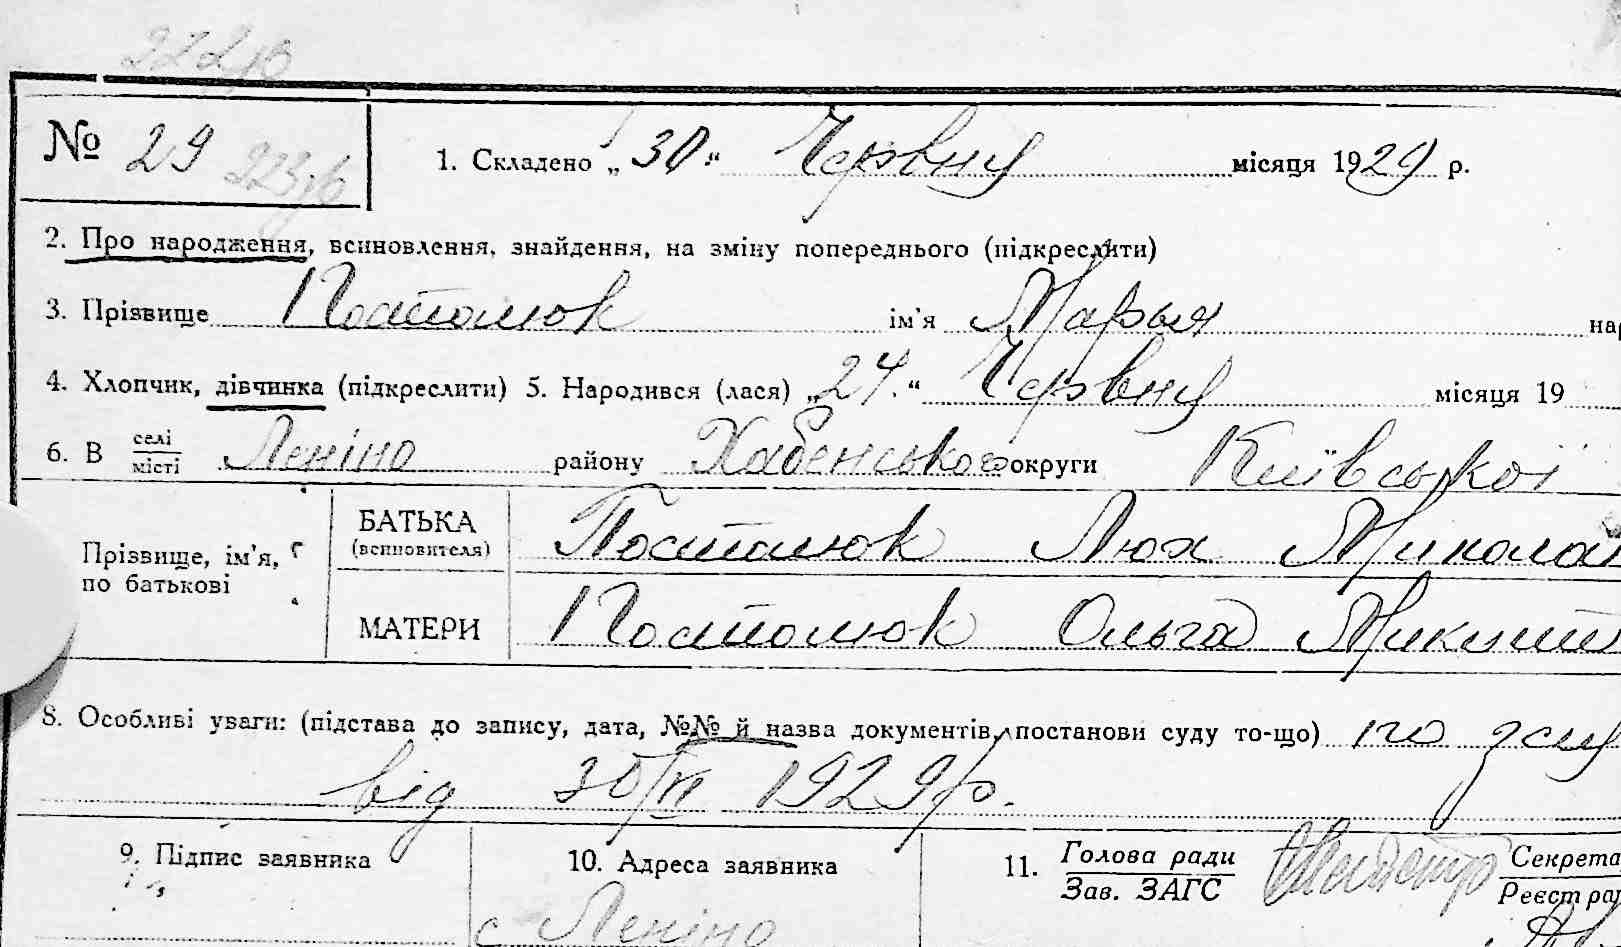 222зв
№ 29 223зв 1. Складено „30“ Червня місяця 1929 р.
2. Про народження, всиновлення, знайдення, на зміну попереднього (підкреслити)
3. Прізвище Постолюк ім'я Марья на
4. Хлопчик, дівчинка (підкреслити) 5. Народився (лася) „24.“ Червня місяця 19
6. В селі/місті Леніно району Хабенського округи Київської
Прізвище, ім'я, по батькові
БАТЬКА (всиновителя) Постолюк Миколай
МАТЕРИ Постолюк Ольга
8. Особливі уваги: (підстава до запису, дата, №№ й назва документів, постанови суду то-що) по
від 30/VI 1929 р.
9. Підпис заявника 10. Адреса заявника 11. Голова ради Секрета
Зав. ЗАГС Реєстра
с Леніно